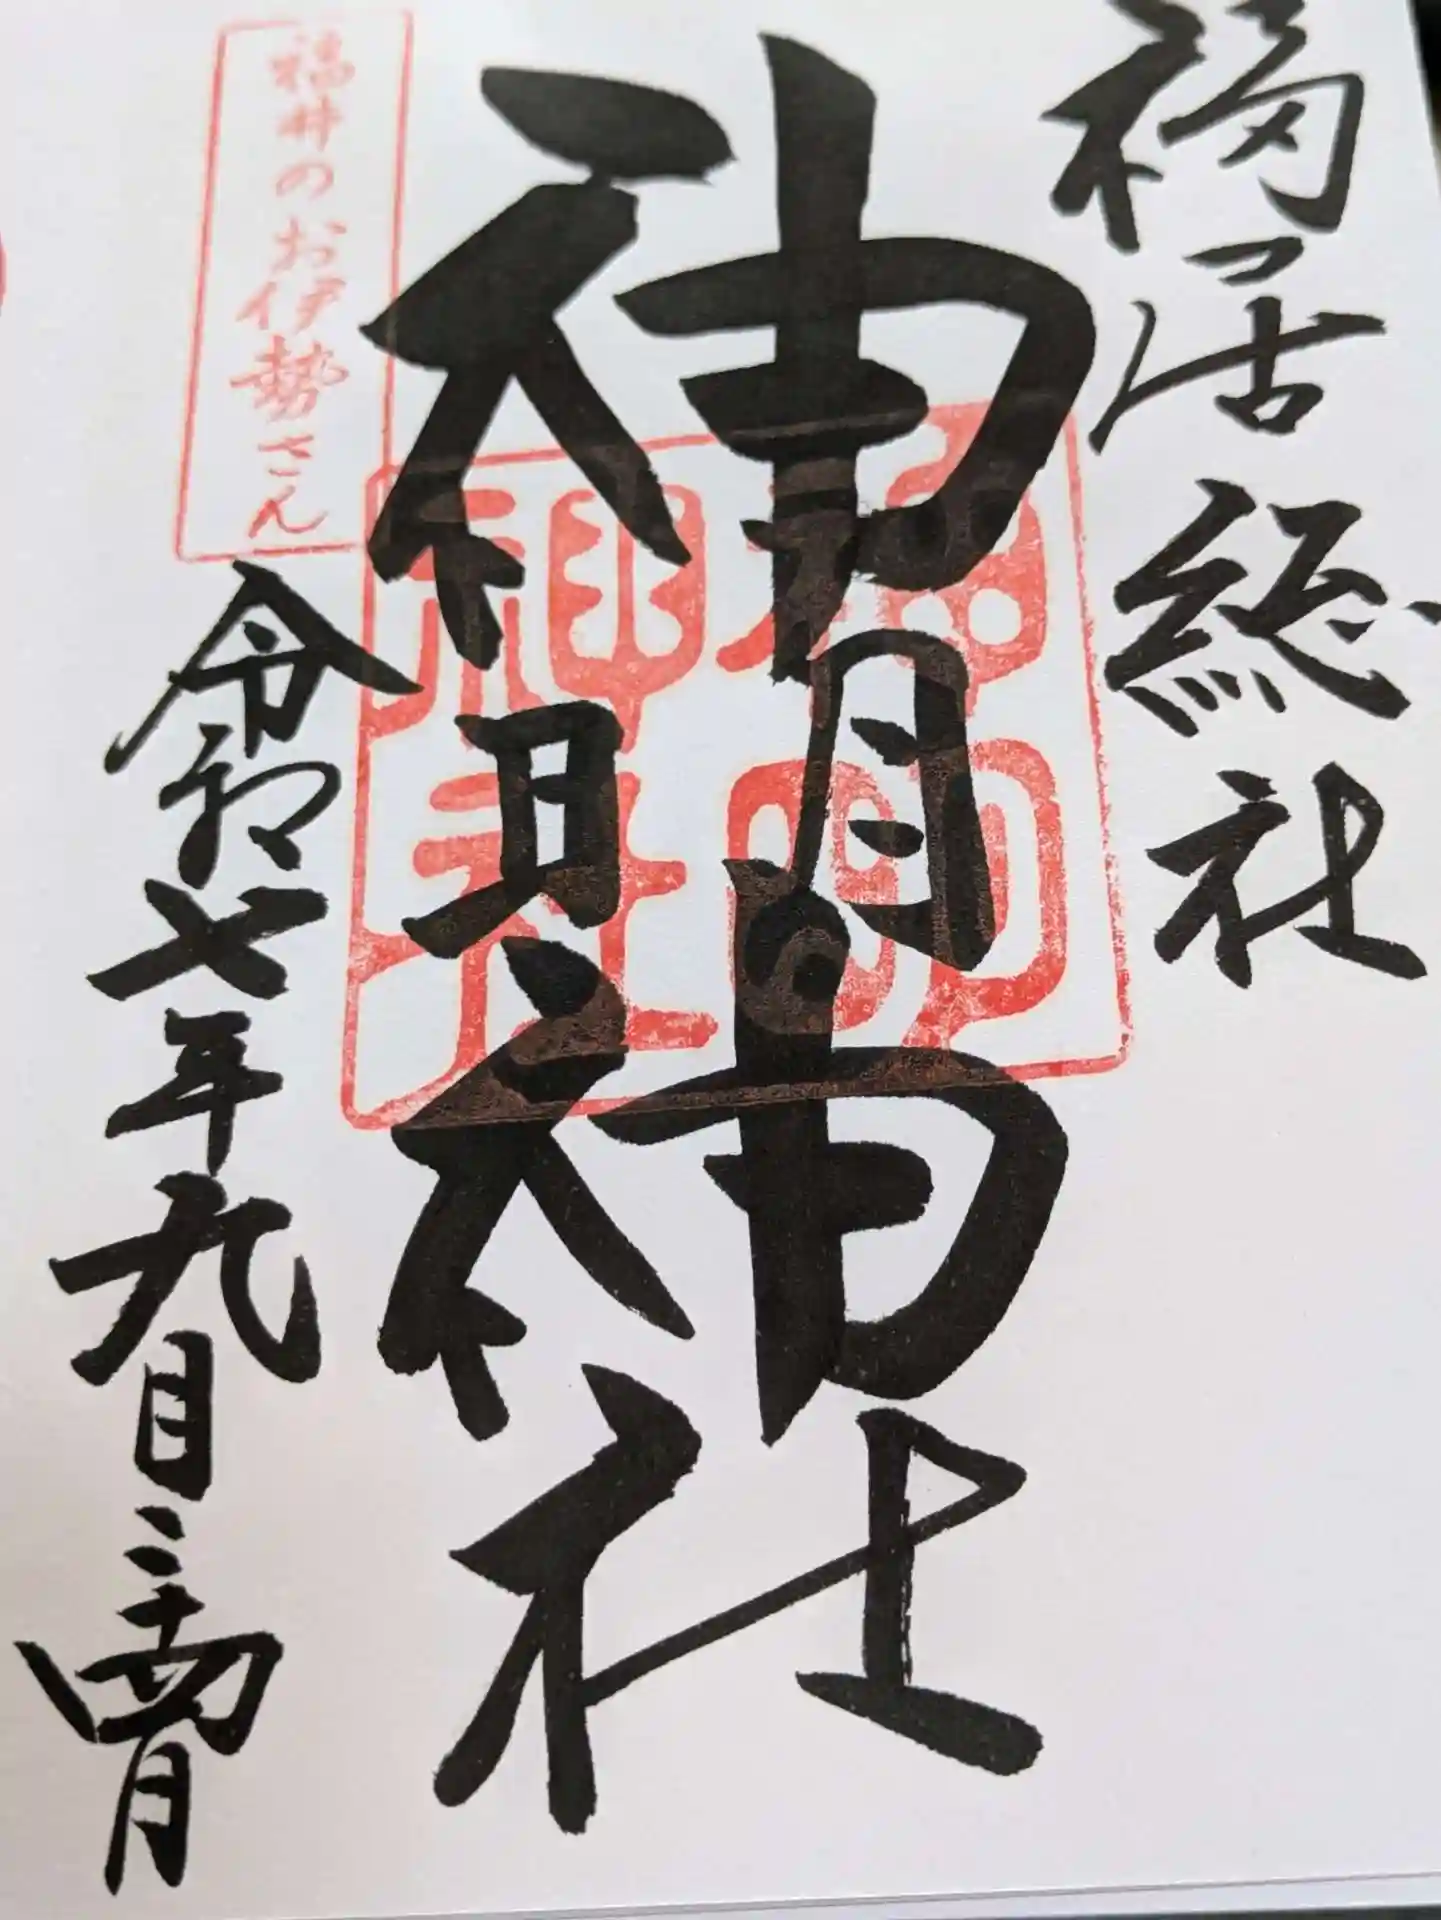 福居総社
神明神社
神明
神社
福井のお伊勢さん
令和七年九月二十四日